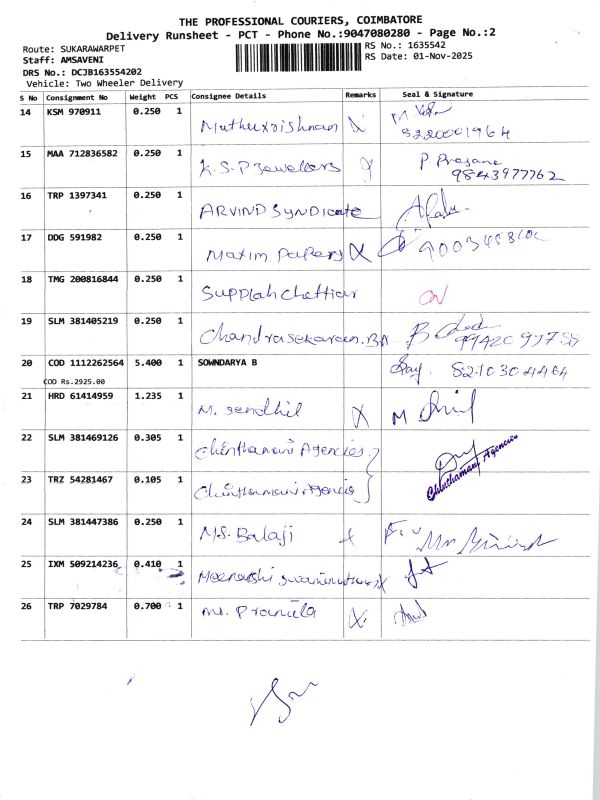 THE PROFESSIONAL COURIERS, COIMBATORE
Delivery Runsheet - PCT - Phone No.:9047080280 - Page No.:2
Route: SUKARAWARPET
RS No.: 1635542
Staff: AMSAVENI
RS Date: 01-Nov-2025
DRS No.: DCJB163554202
Vehicle: Two Wheeler Delivery
S No Consignment No Weight PCS Consignee Details Remarks Seal & Signature
14 KSM 970911 0.250 1 Muthukrishnan
8220001964
15 MAA 712836582 0.250 1 K.S.P Jewellers P Prasana
9843977762
16 TRP 1397341 0.250 1 ARVIND SYNDICATE
17 DDG 591982 0.250 1 Maxim Papers
18 TMG 200816844 0.250 1 Suppiah Chettiar
19 SLM 381405219 0.250 1 Chandrasekaran.BA
20 COD 1112262564 5.400 1 SOWNDARYA B
COD Rs.2925.00
21 HRD 61414959 1.235 1 M. Sendhil M
22 SLM 381469126 0.305 1 Chinthamani Agencies
Chinthamani Agencies
23 TRZ 54281467 0.105 1 Chinthamani Agencies
24 SLM 381447386 0.250 1 M.S. Balaji
25 IXM 509214236 0.410 1 Meenakshi
26 TRP 7029784 0.700 1 Ms. Pramila